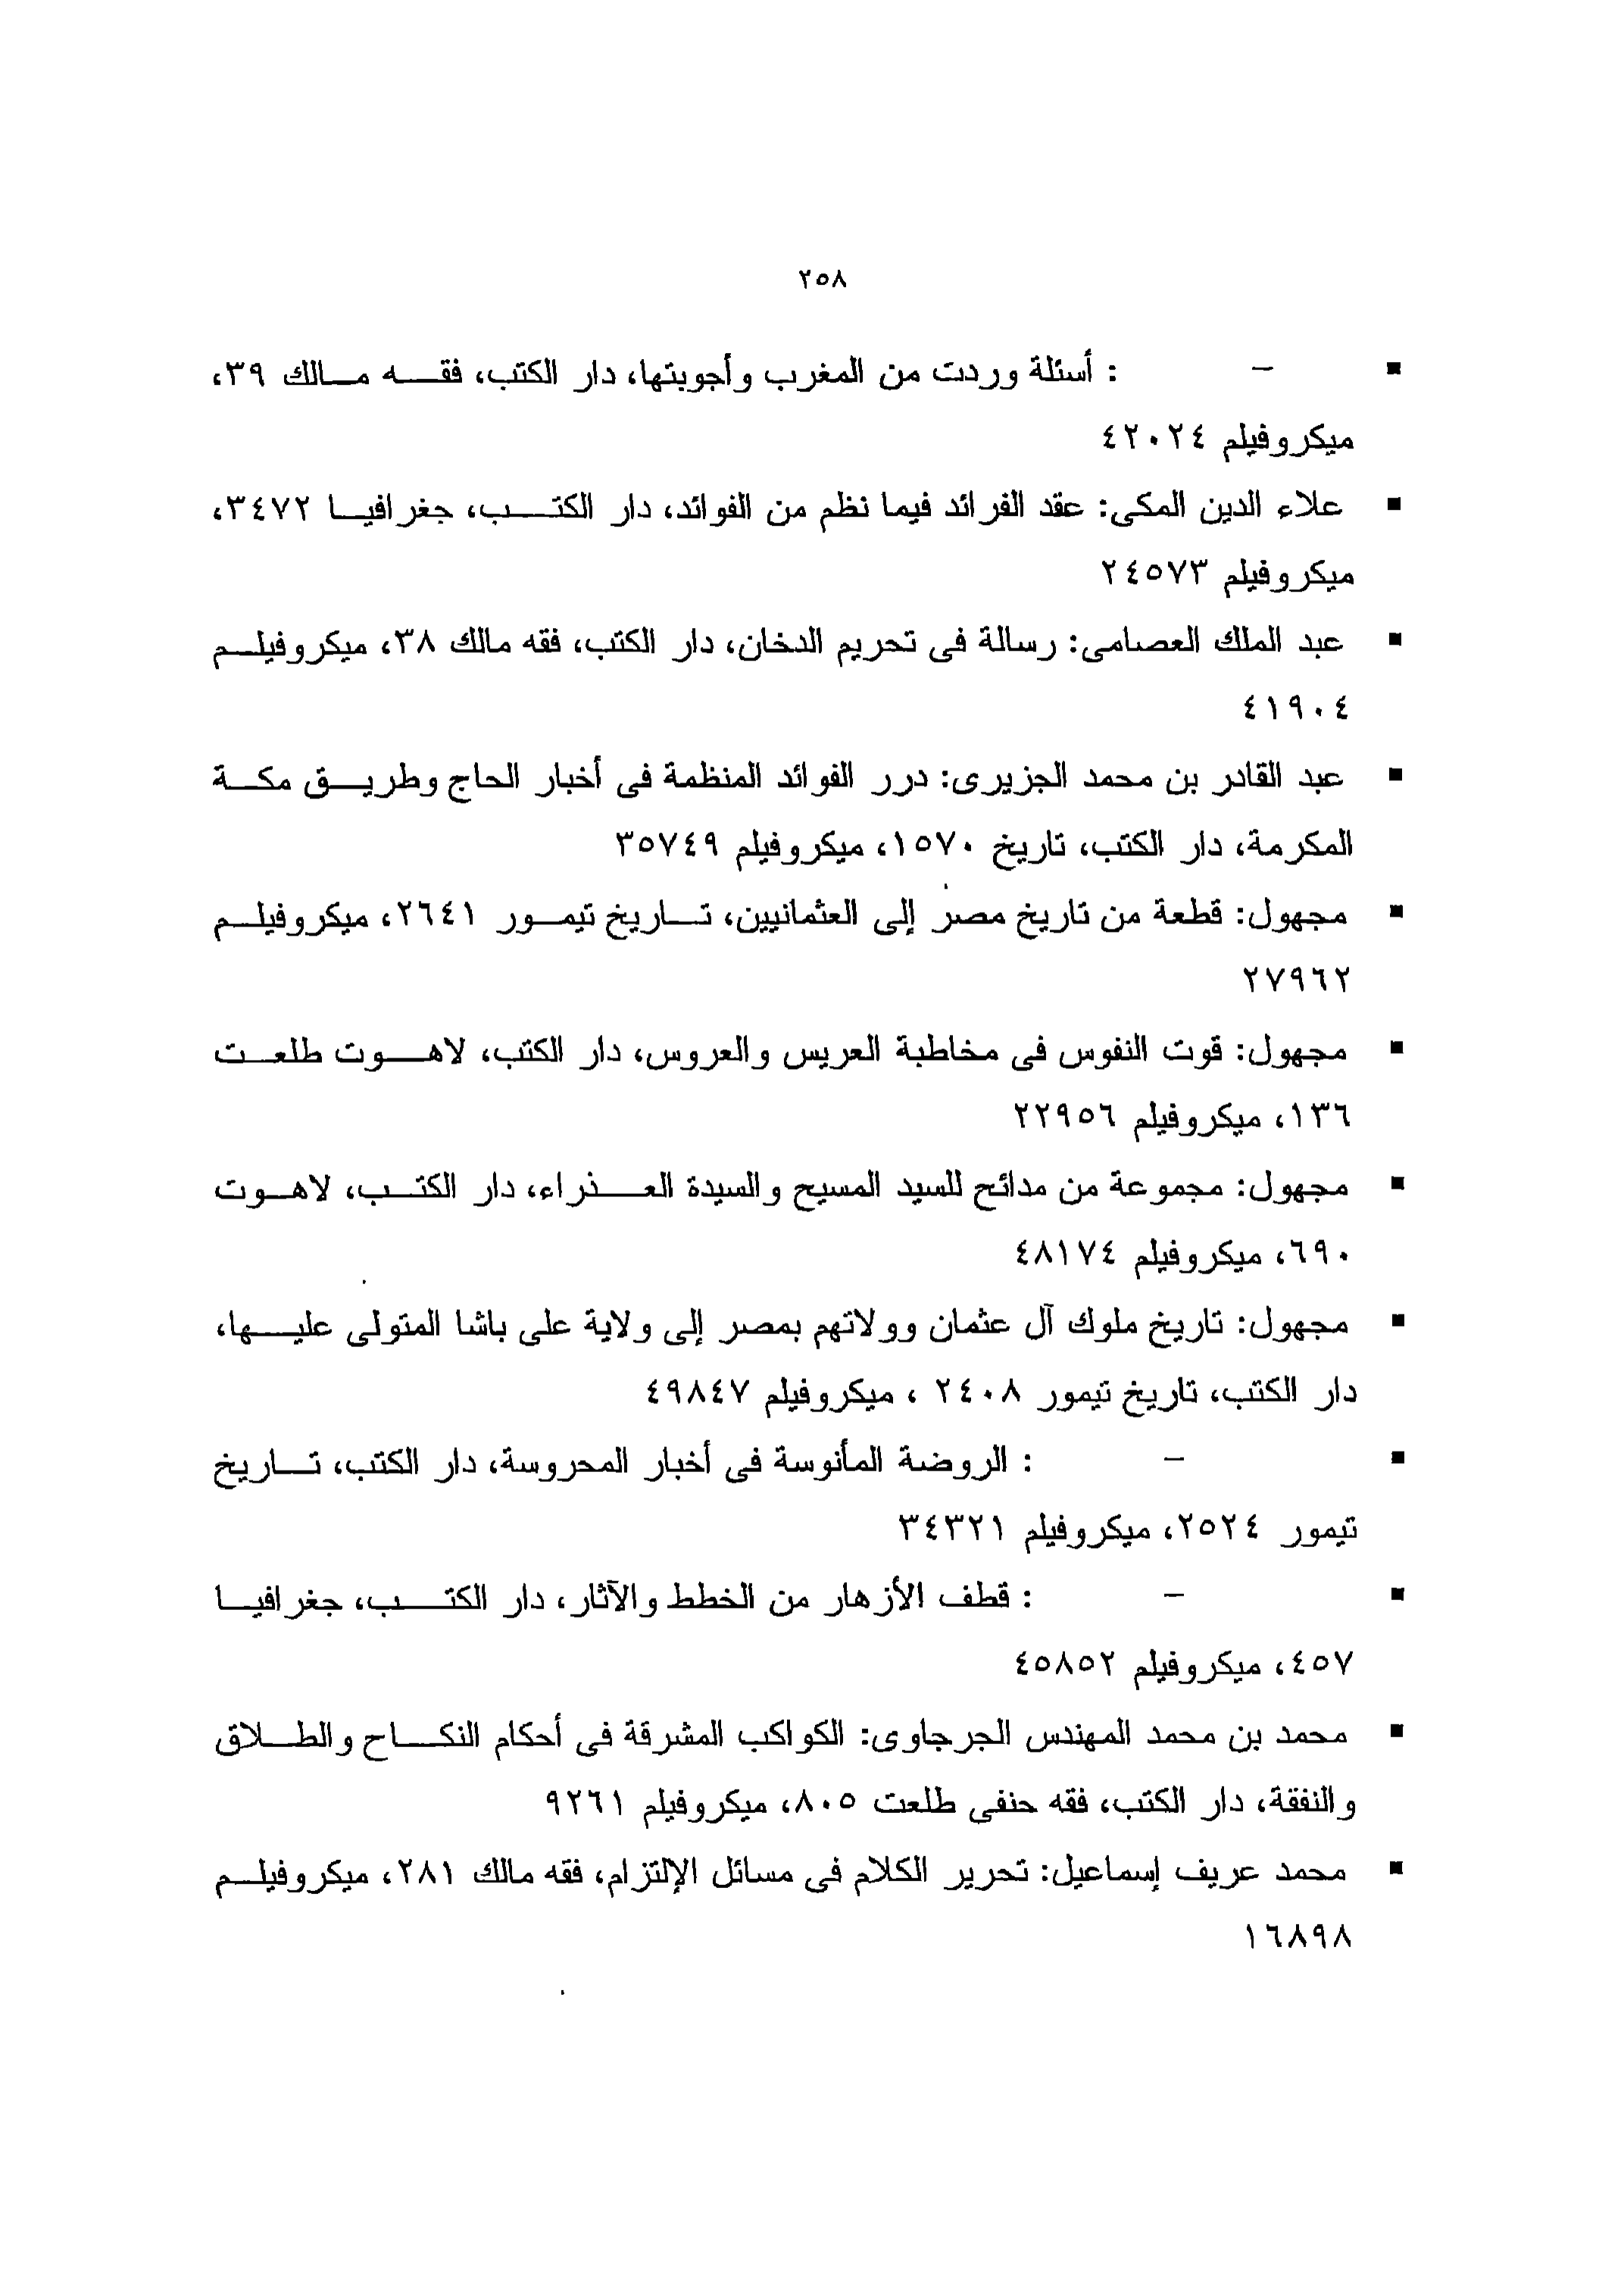 ٢٥٨
▪ – : أسئلة وردت من المغرب وأجوبتها، دار الكتب، فقه مالك ٣٩،
ميكروفيلم ٤٢٠٢٤
▪ علاء الدين المكى: عقد الفرائد فيما نظم من الفوائد، دار الكتب، جغرافيا ٣٤٧٢،
ميكروفيلم ٢٤٥٧٣
▪ عبد الملك العصامى: رسالة فى تحريم الدخان، دار الكتب، فقه مالك ٣٨، ميكروفيلم
٤١٩٠٤
▪ عبد القادر بن محمد الجزيرى: درر الفوائد المنظمة فى أخبار الحاج وطريق مكة
المكرمة، دار الكتب، تاريخ ١٥٧٠، ميكروفيلم ٣٥٧٤٩
▪ مجهول: قطعة من تاريخ مصر إلى العثمانيين، تاريخ تيمور ٢٦٤١، ميكروفيلم
٢٧٩٦٢
▪ مجهول: قوت النفوس فى مخاطبة العريس والعروس، دار الكتب، لاهوت طلعت
١٣٦، ميكروفيلم ٢٢٩٥٦
▪ مجهول: مجموعة من مدائح للسيد المسيح والسيدة العذراء، دار الكتب، لاهوت
٦٩٠، ميكروفيلم ٤٨١٧٤
▪ مجهول: تاريخ ملوك آل عثمان وولاتهم بمصر إلى ولاية على باشا المتولى عليها،
دار الكتب، تاريخ تيمور ٢٤٠٨ ، ميكروفيلم ٤٩٨٤٧
▪ – : الروضة المأنوسة فى أخبار المحروسة، دار الكتب، تاريخ
تيمور ٢٥٢٤، ميكروفيلم ٣٤٣٢١
▪ – : قطف الأزهار من الخطط والآثار، دار الكتب، جغرافيا
٤٥٧، ميكروفيلم ٤٥٨٥٢
▪ محمد بن محمد المهندس الجرجاوى: الكواكب المشرقة فى أحكام النكاح والطلاق
والنفقة، دار الكتب، فقه حنفى طلعت ٨٠٥، ميكروفيلم ٩٢٦١
▪ محمد عريف إسماعيل: تحرير الكلام فى مسائل الإلتزام، فقه مالك ٢٨١، ميكروفيلم
١٦٨٩٨